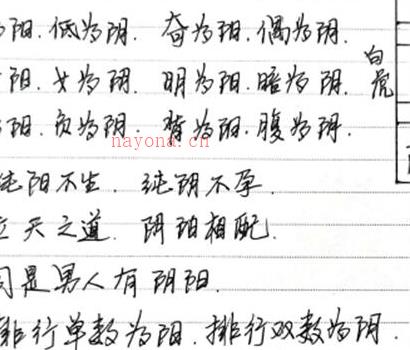 阳.低为阴. 奇为阳.偶为阴.
阳.女为阴. 明为阳.暗为阴.
阳.负为阴. 背为阳.腹为阴.
纯阳不生. 纯阴不孕.
立天之道. 阴阳相配.
同是男人有阴阳.
排行单数为阳.排行双数为阴.
白虎
nayona.cn